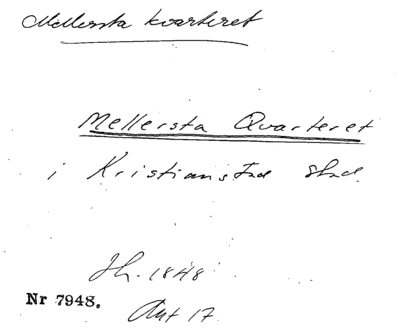 Mellersta kvarteret
Mellersta Qvarteret
i Kristianstad stad.
Jh. 1848
Nr 7948.
Akt 17